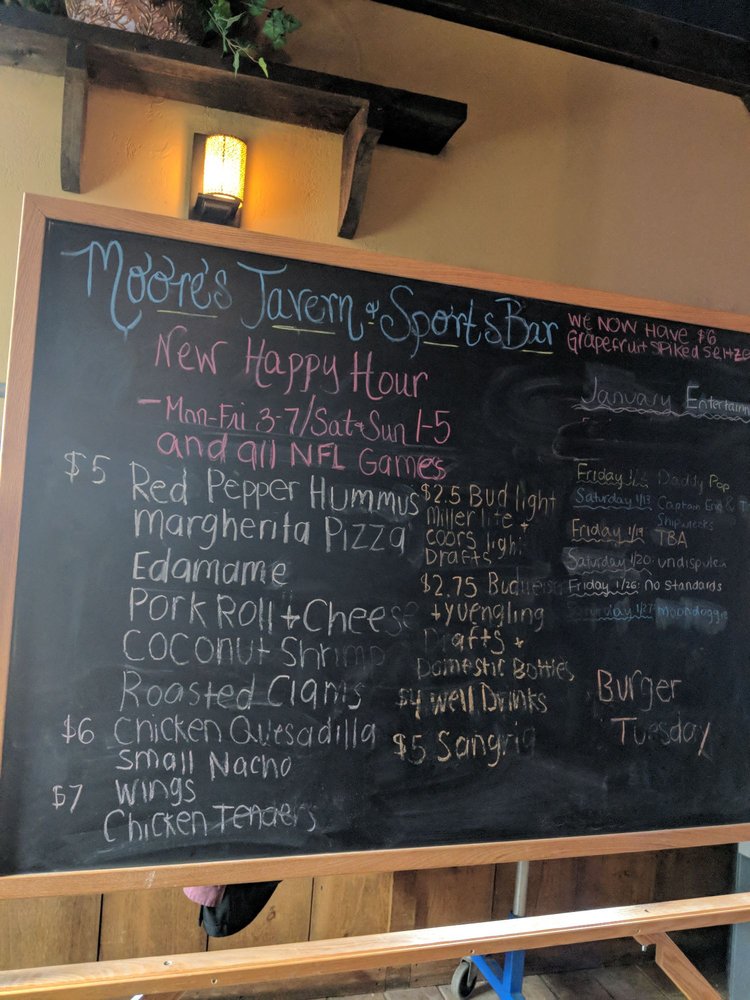 Moore's Tavern & Sports Bar
New Happy Hour
- Mon-Fri 3-7/Sat+Sun 1-5
and all NFL Games
$5 Red Pepper Hummus
Margherita Pizza
Edamame
Pork Roll + Cheese
Coconut Shrimp
Roasted Clams
$6 Chicken Quesadilla
Small Nacho
$7 Wings
Chicken Tenders
$2.5 Bud light
Miller lite +
coors light
Drafts
$2.75 Budweiser
+ yuengling
Drafts +
Domestic Bottles
$4 Well Drinks
$5 Sangria
We now have $6
Grapefruit spiked seltze
January Entertainm
Friday Daddy Pop
Saturday 1/13 Captain &
Shipwrecks
Friday 1/19 TBA
Saturday 1/20: undispute
Friday 1/26: No Standards
Saturday 1/27: Moondoggie
Burger
Tuesday